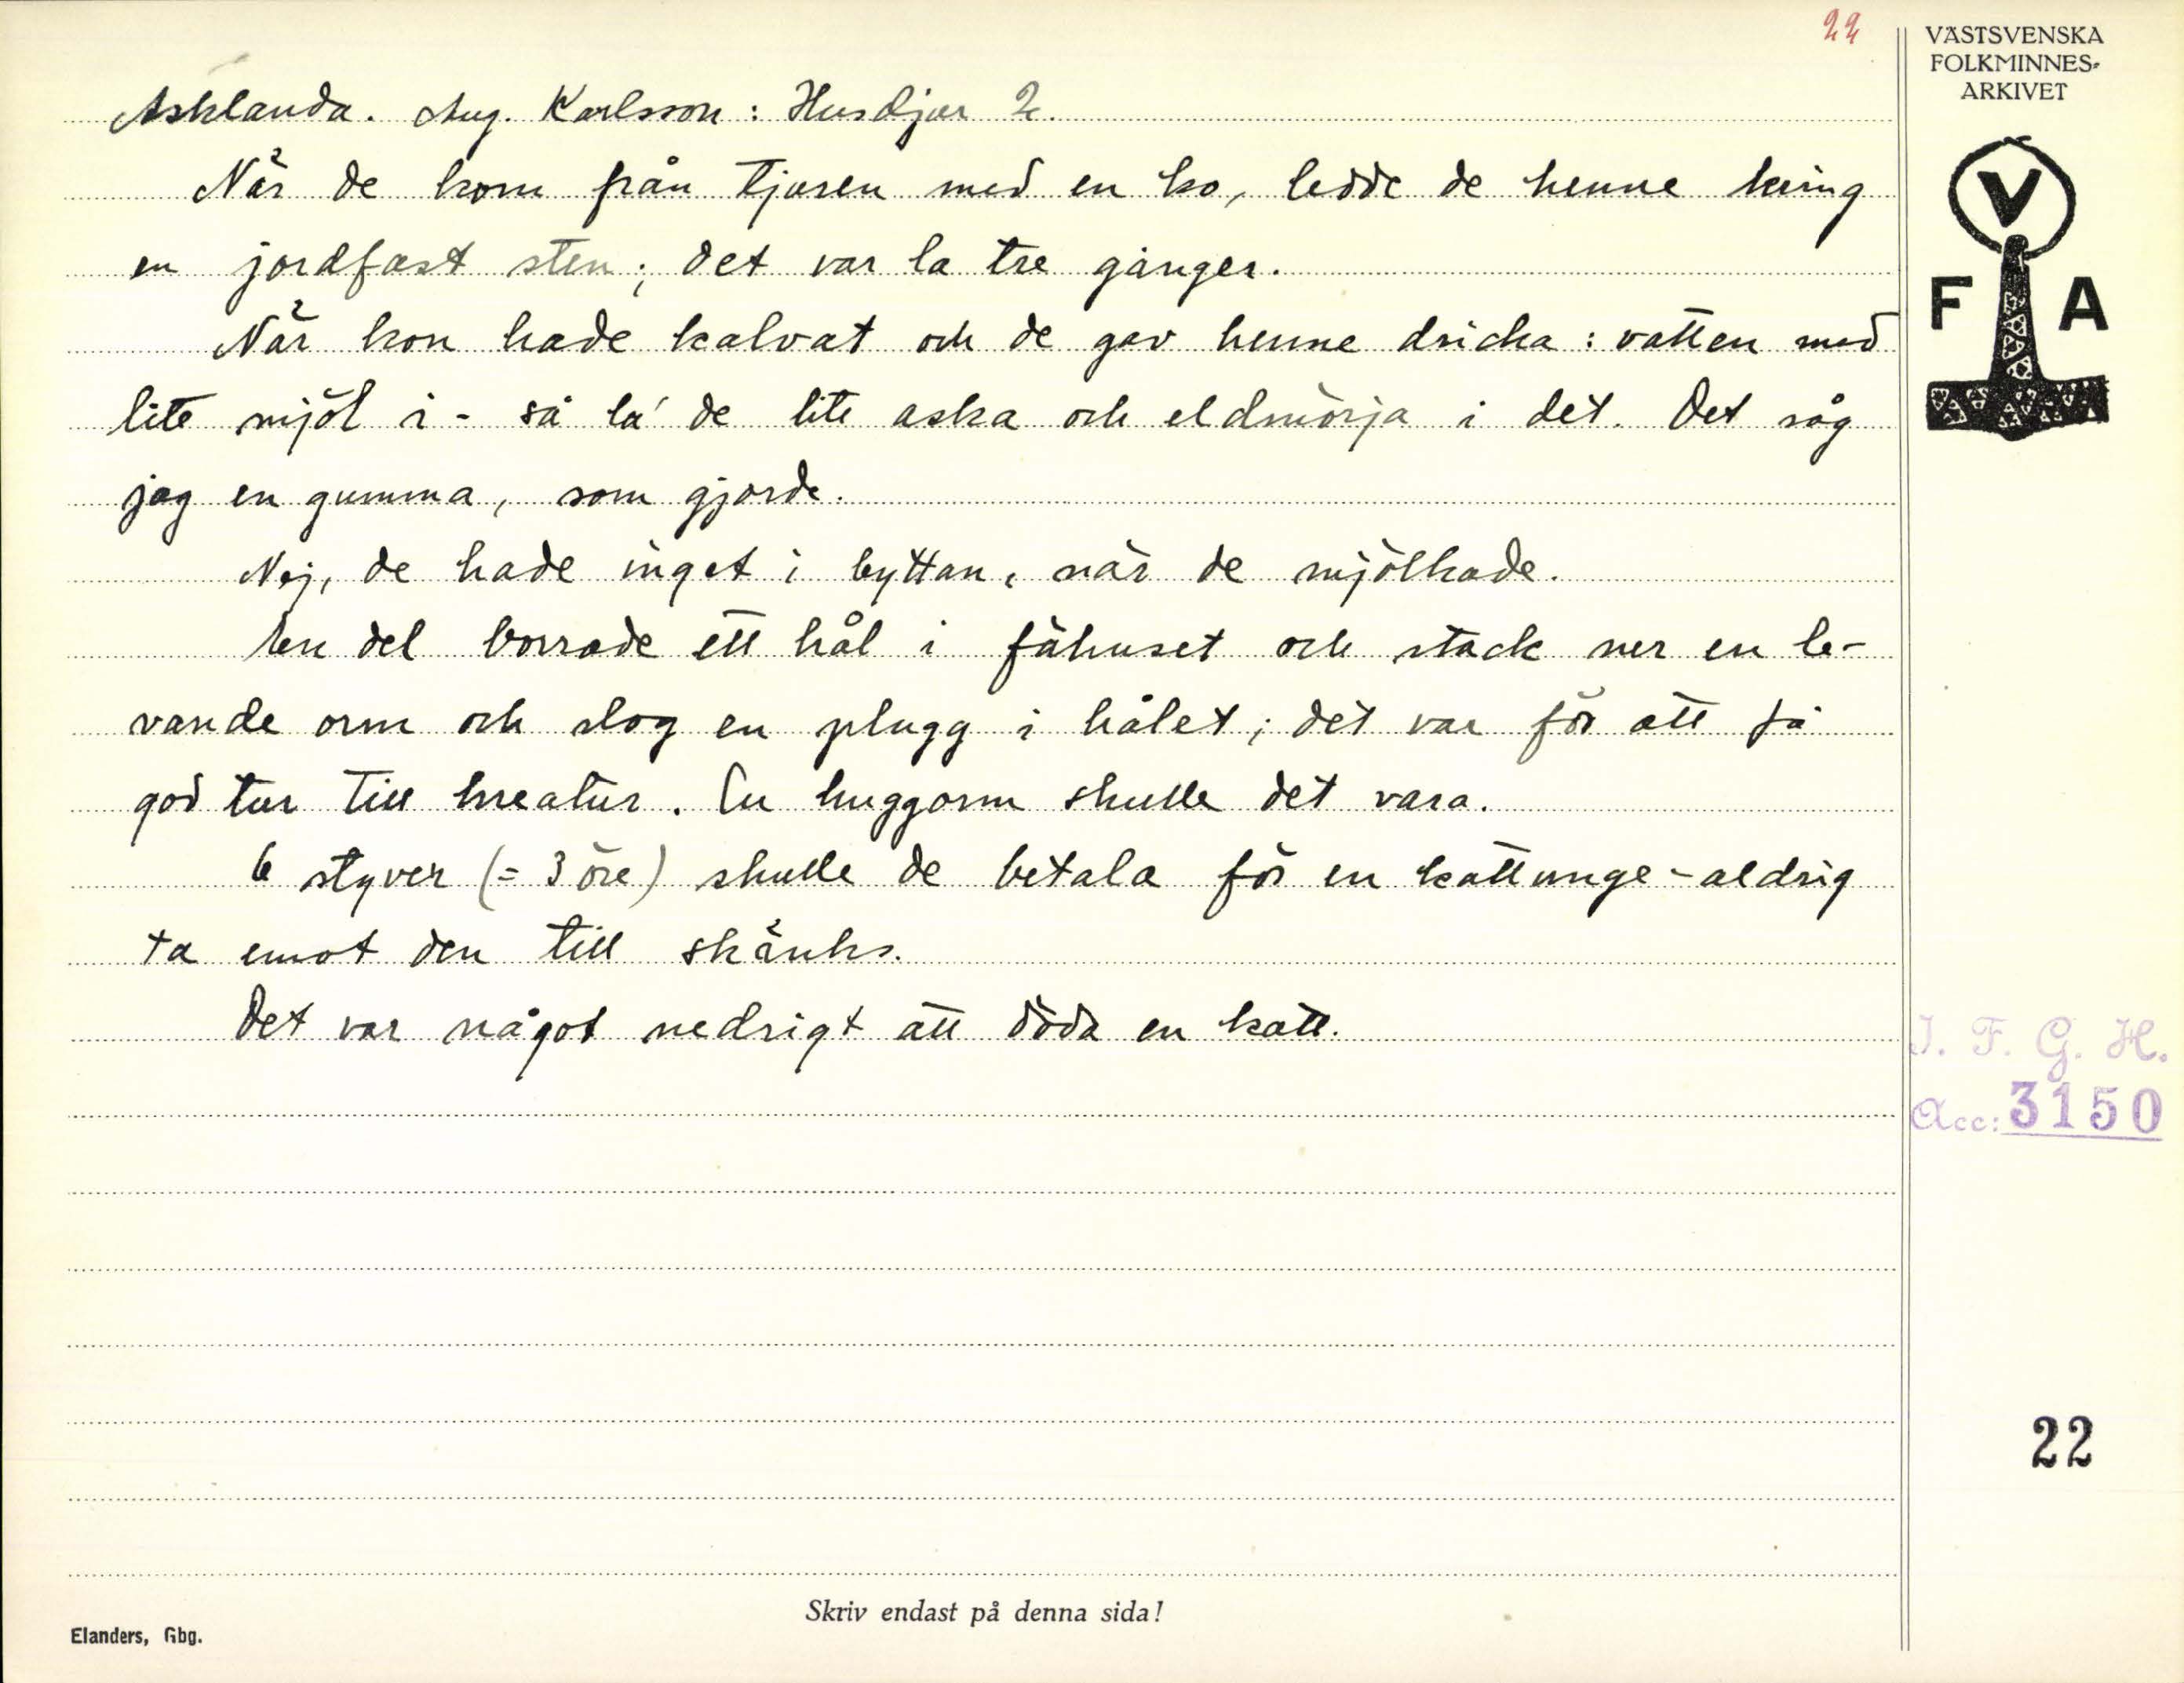 22
VÄSTSVENSKA
FOLKMINNES-
ARKIVET
V
F A
Asklanda. Aug. Karlsson: Husdjur 2.
När de kom från tjuren med en ko, ledde de henne kring
en jordfast sten; det var la tre gånger.
När kon hade kalvat och de gav henne dricka: vatten med
lite mjöl i - så la' de lite aska och eldmörja i det. Det såg
jag en gumma, som gjorde.
Nej, de hade inget i byttan, när de mjölkade.
En del borrade ett hål i fähuset och stack ner en le-
vande orm och slog en plugg i hålet; det var för att få
god tur till kreatur. En huggorm skulle det vara.
6 styver (= 3 öre) skulle de betala för en kattunge - aldrig
ta emot den till skänks.
Det var något nedrigt att döda en katt.
I. F. G. H.
Acc: 3150
22
Skriv endast på denna sida!
Elanders, Gbg.